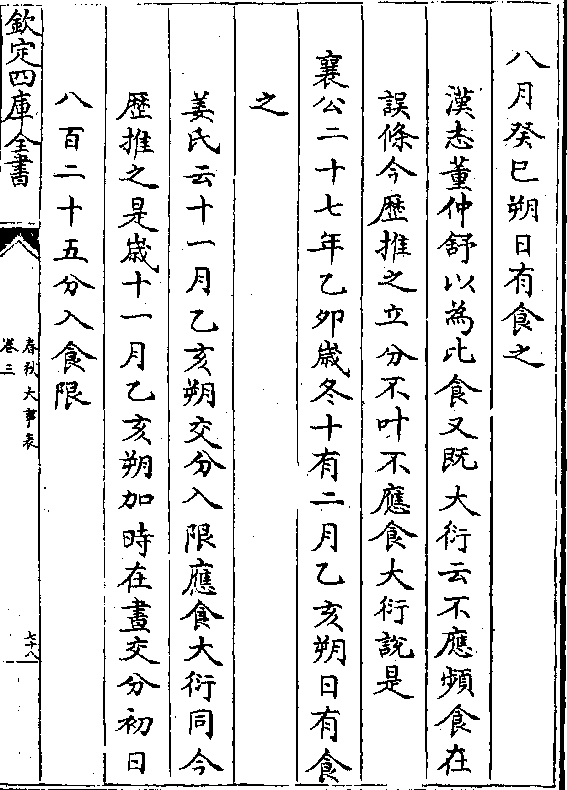 八月癸巳朔日有食之
漢志董仲舒以為比食又既大衍云不應頻食在
誤條今歴推之立分不叶不應食大衍說是
襄公二十七年乙卯歲冬十有二月乙亥朔日有食
之
姜氏云十一月乙亥朔交分入限應食大衍同今
歴推之是歲十一月乙亥朔加時在晝交分初日
八百二十五分入食限
欽定四庫全書
春秋大事表
卷三
七十八